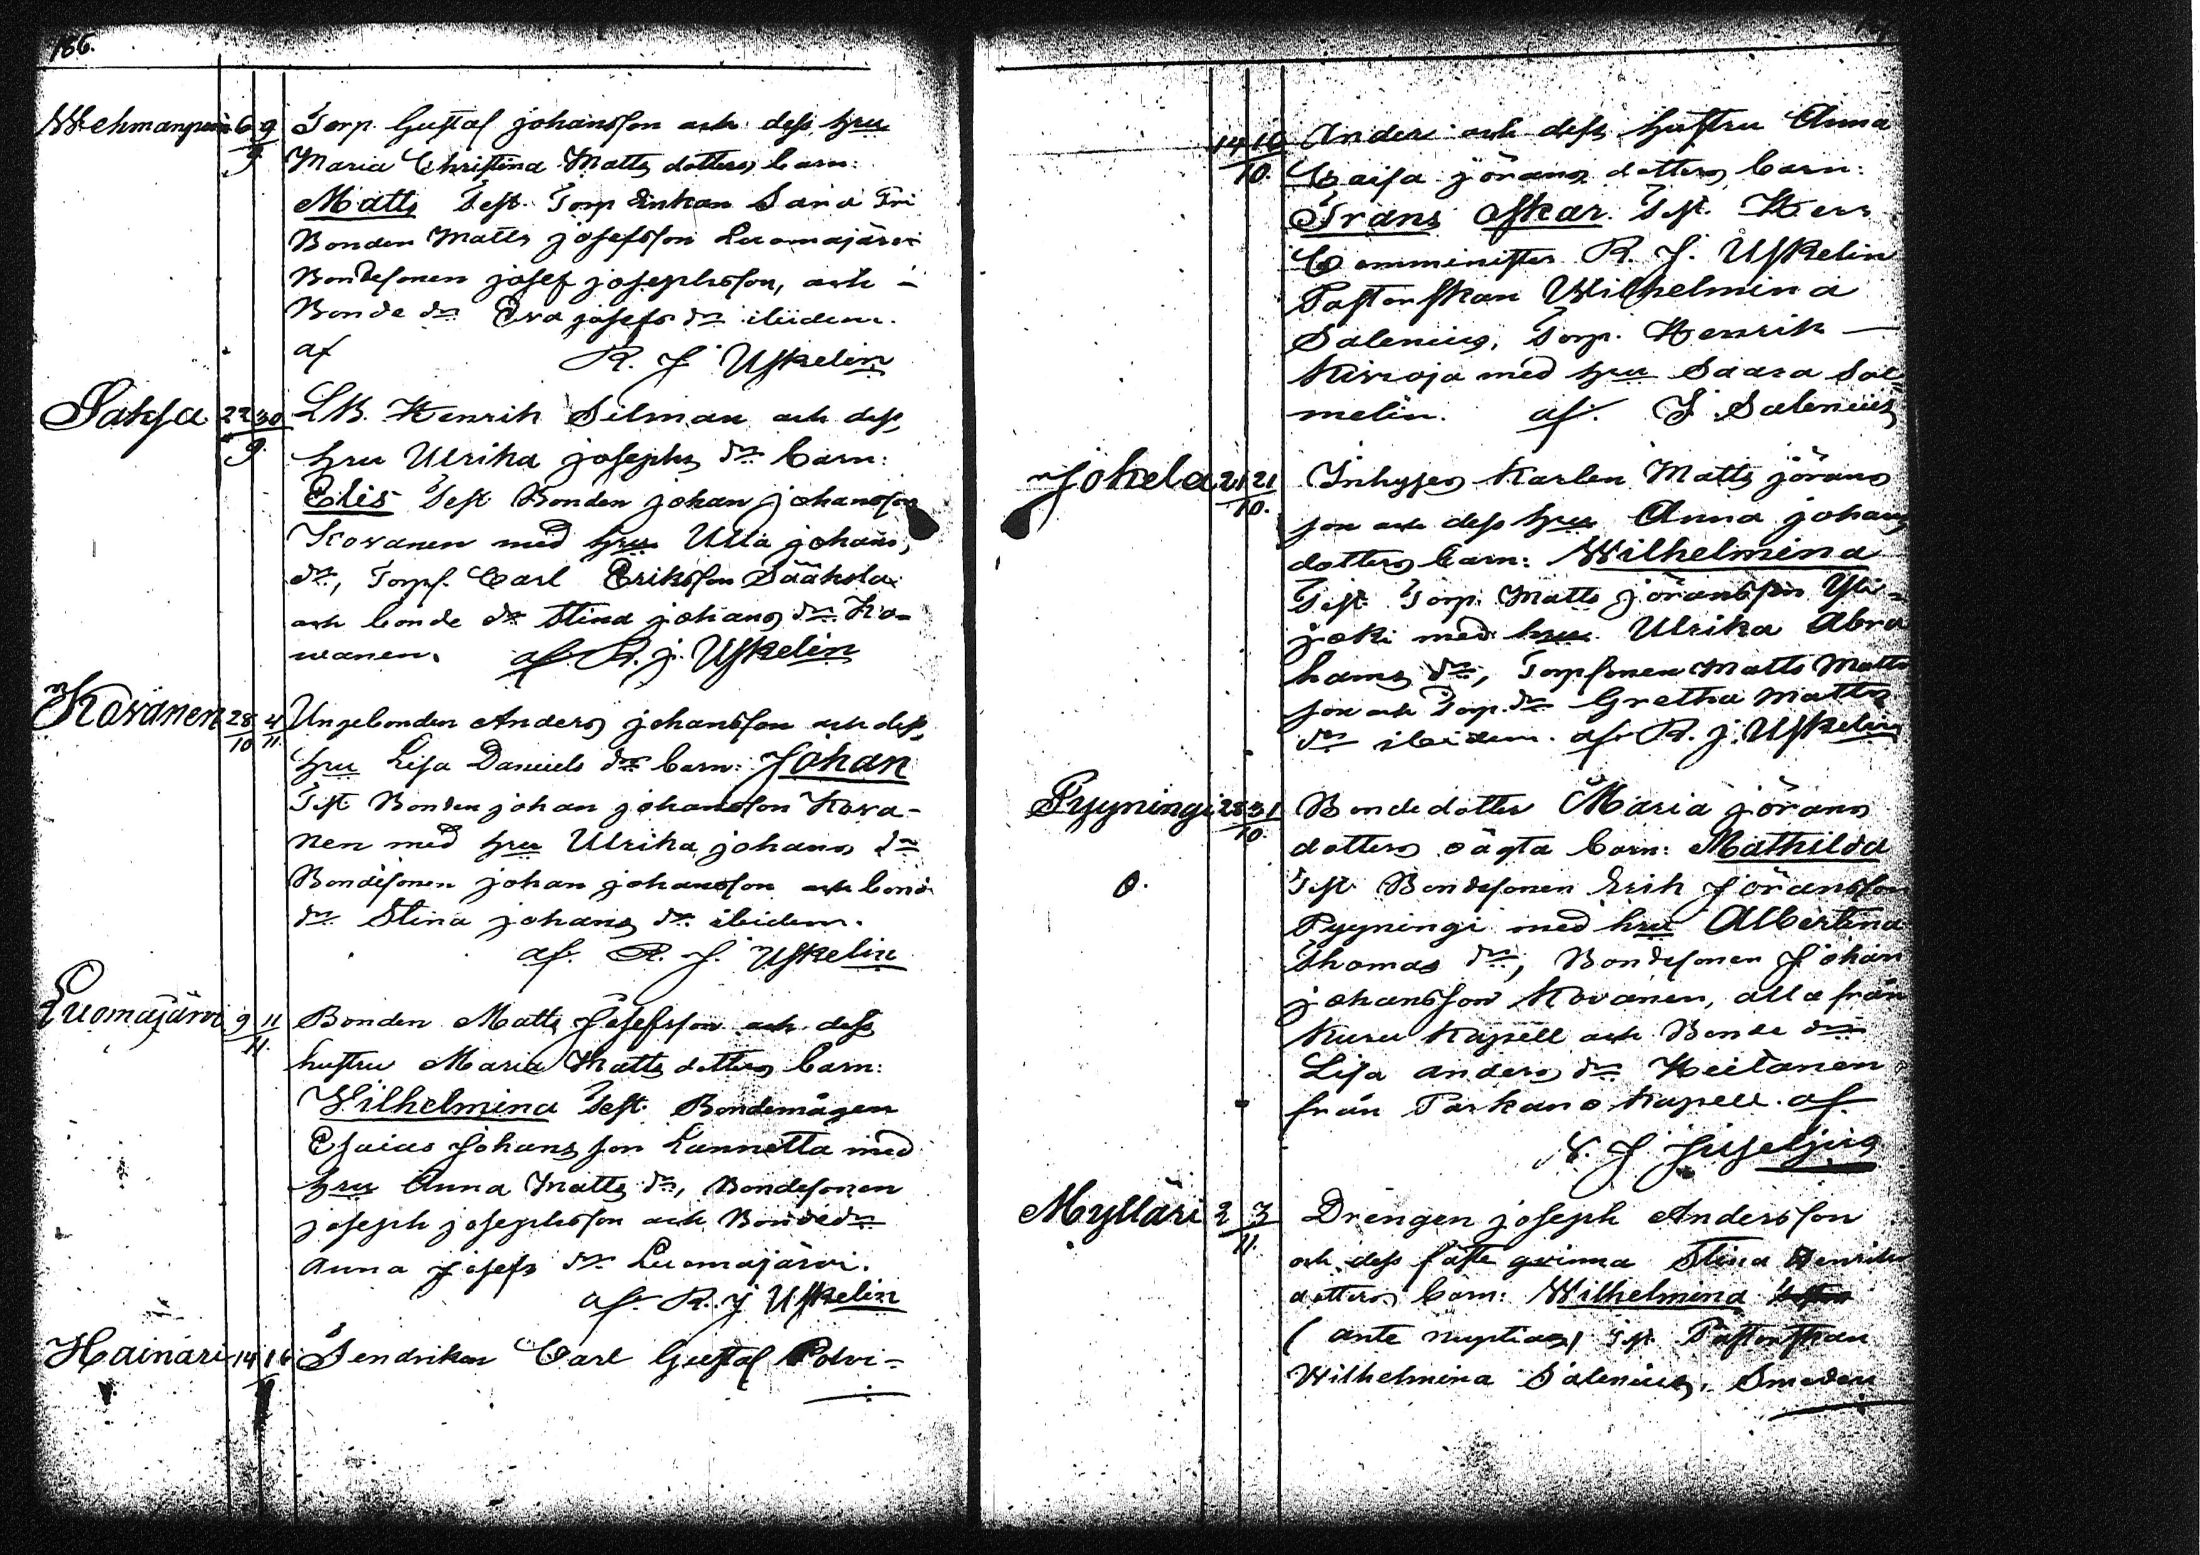 186.
Wehmanperä 6 9/9 Torp. Gustaf Johansson och dess hru
Maria Christina Matts dotters barn:
Matts Test. Torp Enkan Saria
Bonden Matts Josefsson Luomajärvi
Bondesonen Josef Josephsson, och
Bonde dr Eva Josefs dr ibidem.
af R. J. Uskelin
Saksa 22 30/9 LB. Henrik Silman och dess
hru Ulrika Josephs dr barn:
Elis Test Bonden Johan Johansson
Kovanen med hru Ulla Johans
dr, Torpf. Carl Eriksson Sääkslä
och bonde dr Stina Johans dr Ko-
wanen. af R. J. Uskelin
Kovanen 28/10 4/11 Ungebonden Anders Johansson och dess
hru Lisa Daniels dr barn: Johan
Test Bonden Johan Johansson Kova-
nen med hru Ulrika Johans dr
Bondesonen Johan Johansson och bond
dr Stina Johans dr ibidem.
af. R. J. Uskelin
Luomajärvi 9 11/11. Bonden Matts Josefsson och dess
hustru Maria Matts dotters barn:
Wilhelmina Test. Bondemågen
Esaias Johansson Lannetta med
hru Anna Matts dr, Bondesonen
Joseph Josephsson och Bondedr
Anna Josefs dr Luomajärvi.
af. R. J Uskelin
Hainari 14 16 Carl Gustaf Polvi-
14 16/10. Ander och dess hustru Anna
Caisa Jörans dotters barn:
Frans Oskar. Test. Herr
Comminister R. J. Uskelin
Pastorskan Wilhelmina
Salenius, Torp. Henrik
Kivioja med hru Saara Sal-
melin. af. J Salenius
Jokela 21 21/10. Inhyses Karlen Matts Jörans
son och dess hru Anna Johans
dotters barn: Wilhelmina
Test. Torp. Matts Jöransson Yli-
joki med hru Ulrika Abra
hams dr, Torpsonen Matts Matts
son och Torp. dr Gretha Matts
dr ibidem. af R. J. Uskelin
Pyyningi 28 31/10. Bondedotter Maria Jörans
dotters oägta barn: Mathilda
O. Test. Bondesonen Erik Jöransson
Pyyningi med hru Albertina
Thomas dr, Bondesonen Johan
Johansson Kovanen, alla från
Kuru Kapell och Bonde dr
Lisa Anders dr Heitanen
från Parkano Kapell. af
J. Juseljus
Mylläri 2 3/11. Drengen Joseph Andersson
och dess fäste qvinna Stina Henriks
dotters barn: Wilhelmina
(ante nuptias) Test. Pastorskan
Wilhelmina Salenius, Smeden